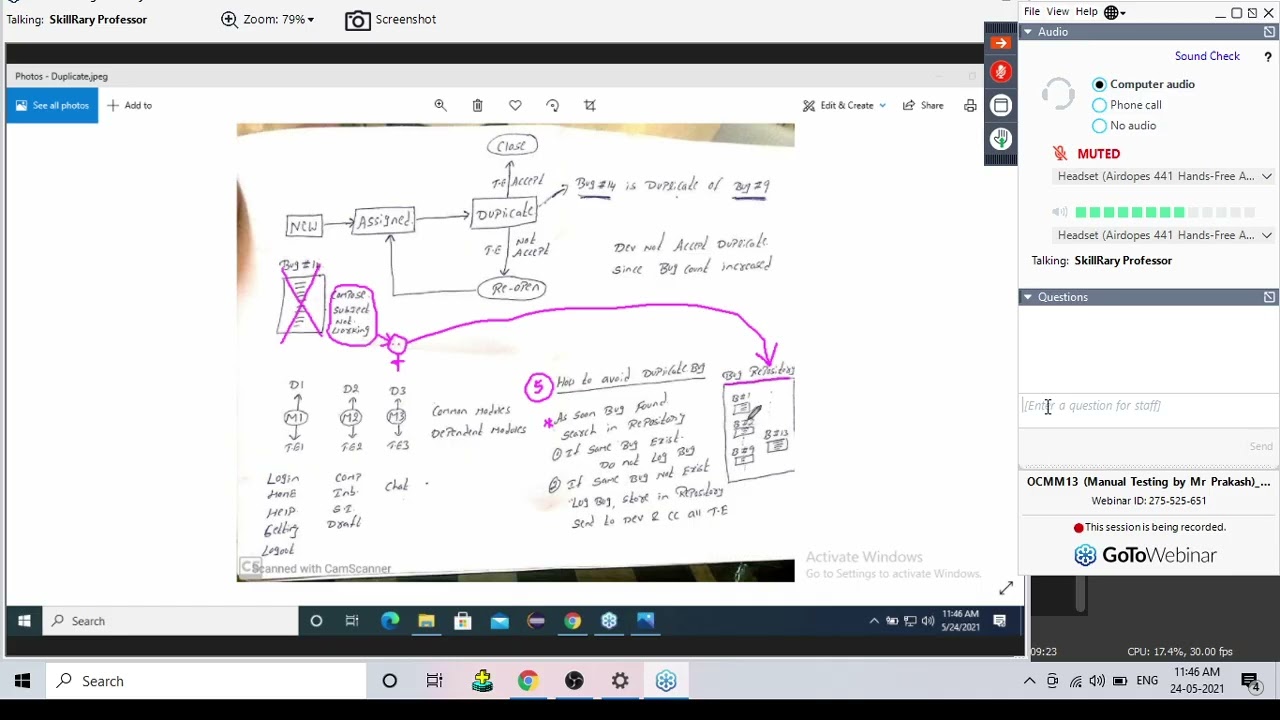 Talking: SkillRary Professor
Zoom: 79%
Screenshot
File View Help
Audio
Sound Check ?
Computer audio
Phone call
No audio
MUTED
Headset (Airdopes 441 Hands-Free A...
Headset (Airdopes 441 Hands-Free A...
Talking: SkillRary Professor
Questions
[Enter a question for staff]
Send
OCMM13 (Manual Testing by Mr Prakash)_...
Webinar ID: 275-525-651
This session is being recorded.
GoToWebinar
Photos - Duplicate.jpeg
See all photos
Add to
Edit & Create
Share
Close
T.E ACCEPT
Bug #14 is Duplicate of Bug #9
NEW
Assigned
Duplicate
T.E NOT
ACCEPT
Re-open
Dev Not Accept Duplicate
Since Bug count increased
Bug #14
Compose
Subject
Not
Working
D1 D2 D3
M1 M2 M3
TE1 TE2 TE3
Common Modules
Dependent Modules
Login
Home
Help
Setting
Logout
Comp
Inb
S.I
Draft
Chat
5 How to avoid Duplicate Bug
As soon Bug Found
search in Repository
① If same Bug Exist.
Do not Log Bug
② If same Bug Not Exist
Log Bug, store in Repository
Send to Dev & CC all T.E
Bug Repository
B#1
B#2
B#9
B#13
CS Scanned with CamScanner
Activate Windows
Go to Settings to activate Windows.
Search
11:46 AM
5/24/2021
09:23
CPU: 17.4%, 30.00 fps
Search
ENG
11:46 AM
24-05-2021
4